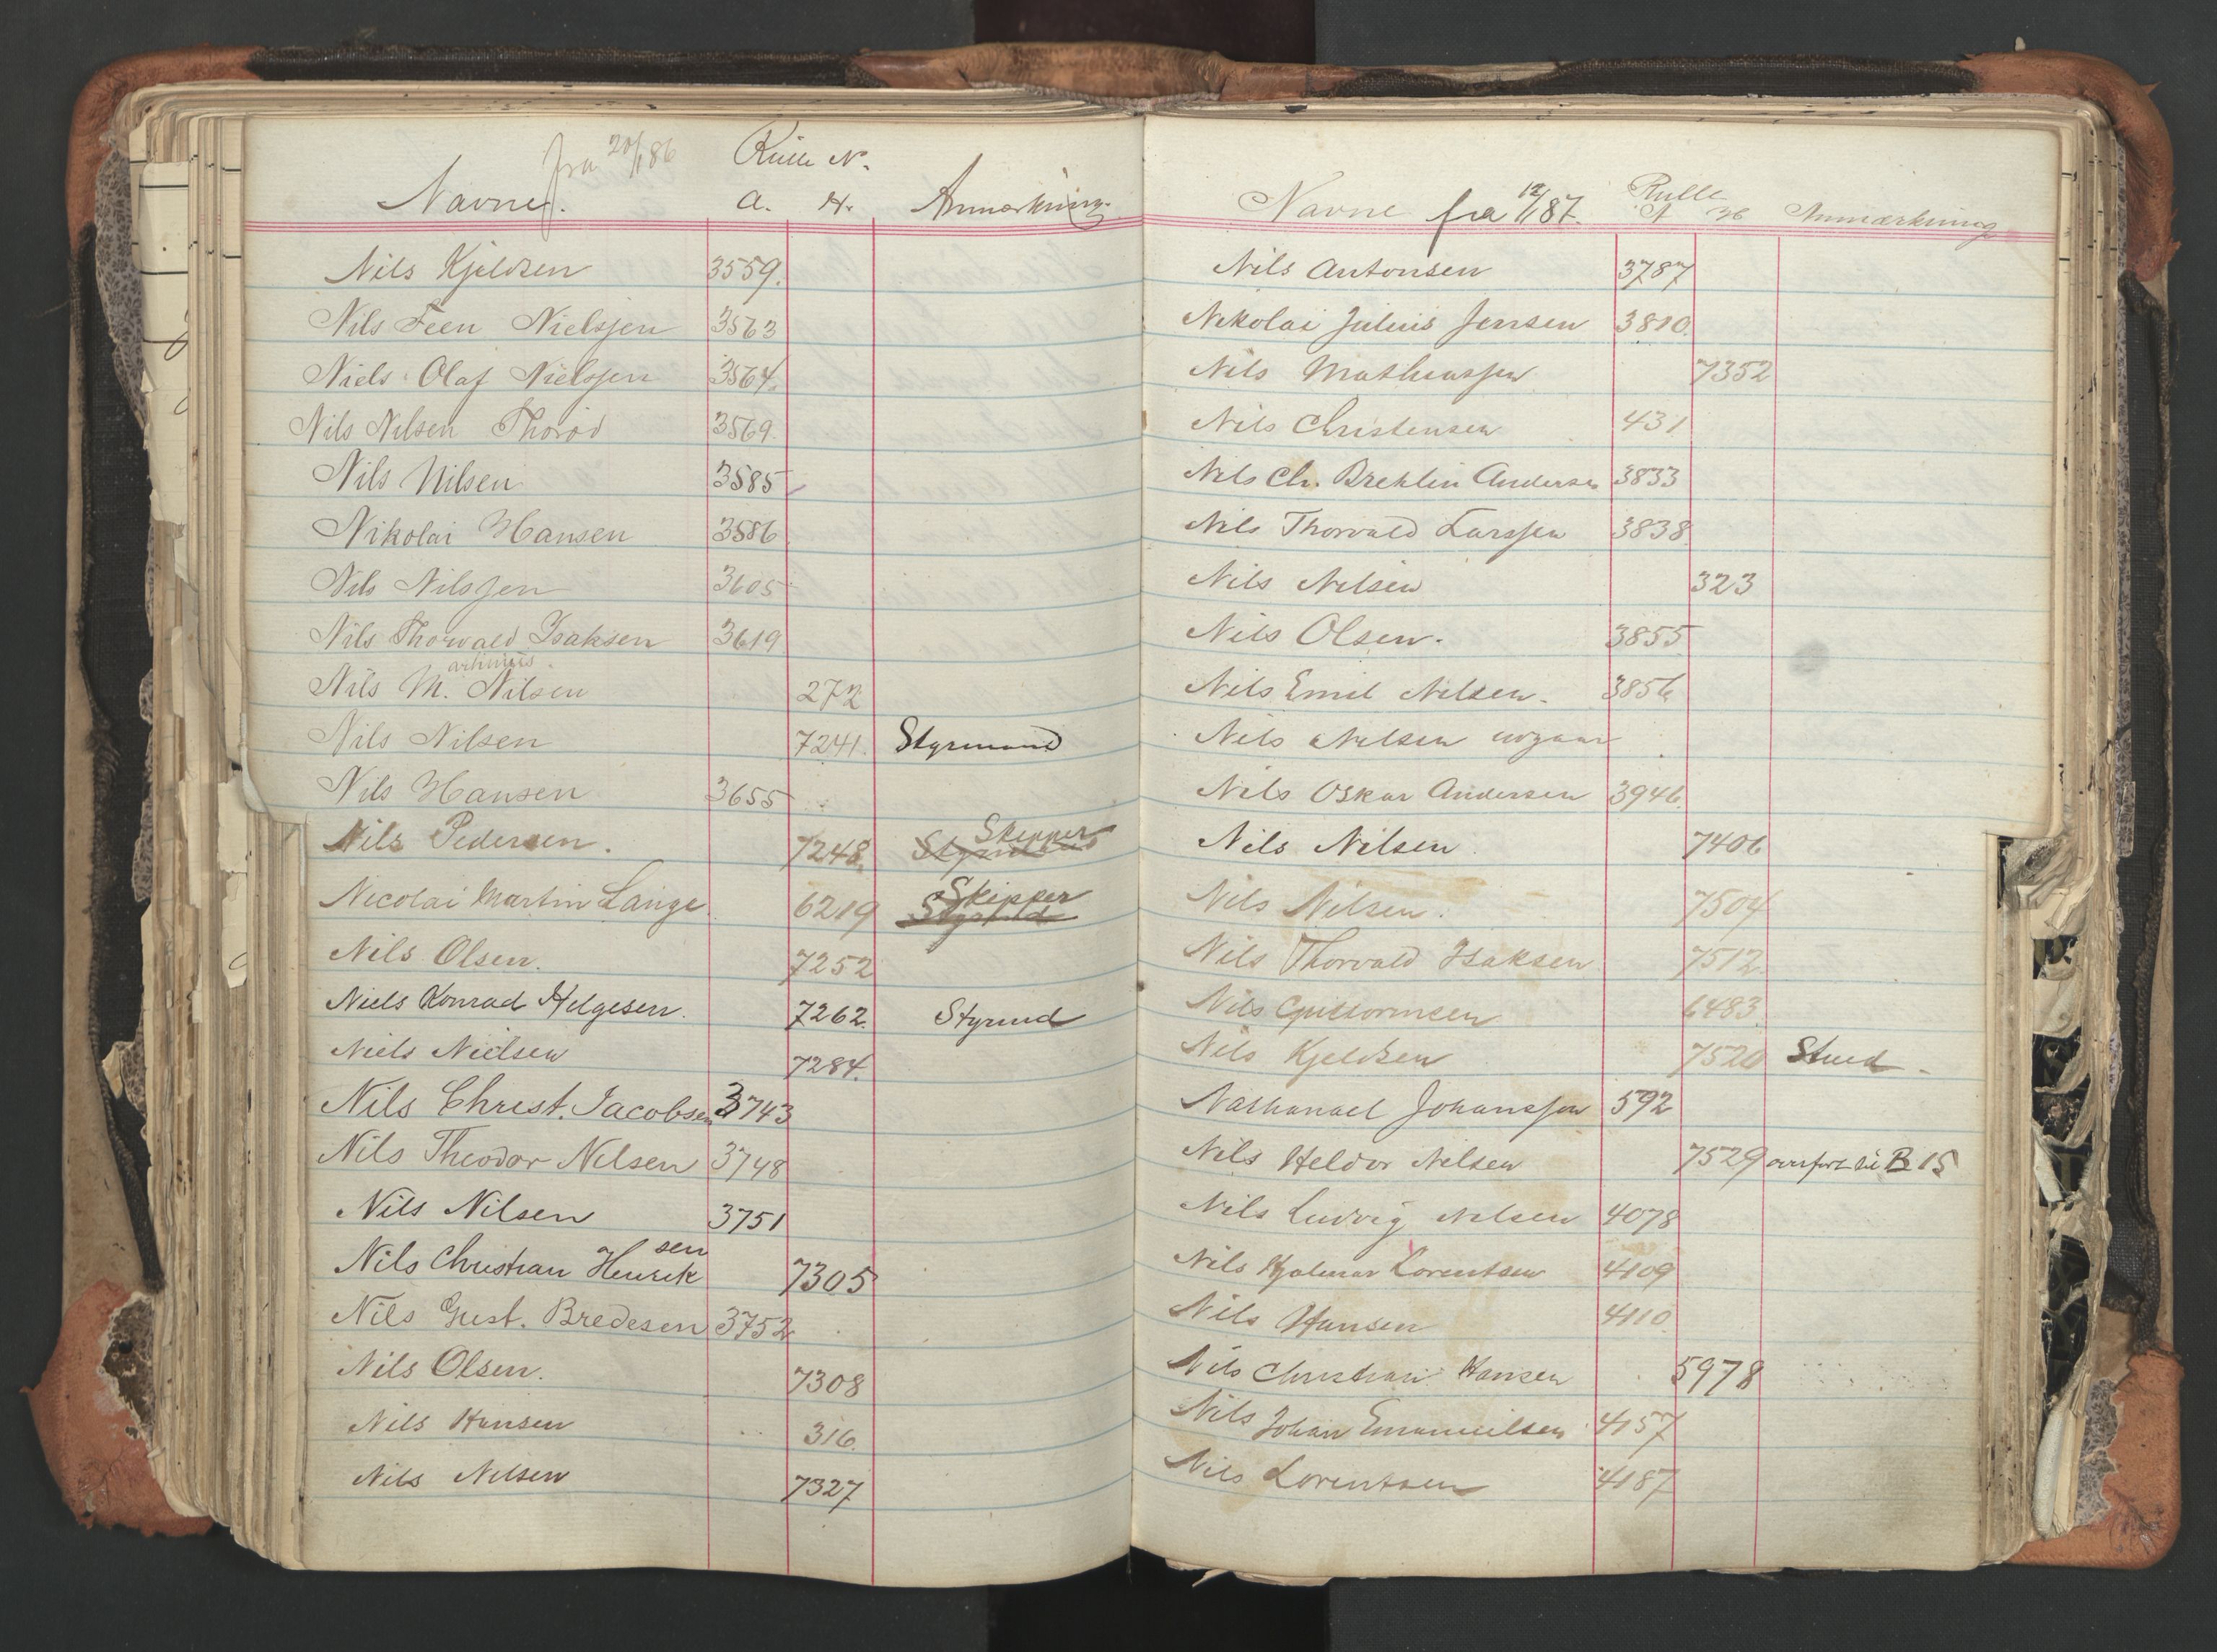 fra 20/1 86 Rulle N.
Navne. A. H. Anmærkning
Nils Kjeldsen 3559.
Nils Feen Nielsen 3563
Niels Olaf Nielsen 3564.
Nils Nilsen Thorød 3569.
Nils Nilsen 3585
Nikolai Hansen 3586
Nils Nilssen 3605
Nils Thorvald Isaksen 3619
artinius
Nils M. Nilsen 272
Nils Nilsen 7241. Styrmand
Nils Hansen 3655
Nils Pedersen. 7248. Styrmd Skipper
Nicolai Martin Lange 6219 Styrmd Skipper
Nils Olsen. 7252
Niels Konrad Helgesen. 7262. Styrmd
Niels Nielsen 7284.
Nils Christ. Jacobsen 3743
Nils Theodor Nilsen 3748
Nils Nilsen 3751
sen
Nils Christian Henrik 7305
Nils Gust. Bredesen 3752
Nils Olsen. 7308
Nils Hansen 316.
Nils Nilsen 7327
Rulle
Navne fra 12/1 87. A H Anmærkning
Nils Antonsen 3787
Nikolai Julius Jensen 3810.
Nils Mathiassen 7352
Nils Christensen 431
Nils Ch. Brehlin Andersen 3833
Nils Thorvald Larssen 3838
Nils Nilsen 323
Nils Olsen. 3855
Nils Emil Nilsen. 3856
Nils Nilsen udgaar
Nils Oskar Andersen 3946.
Nils Nilsen 7406
Nils Nilsen. 7504
Nils Thorvald Isaksen 7512
Nils Guttormsen 6483
Nils Kjeldsen 7520 Stmd
Nathanael Johanssen 592
Nils Heldor Nilsen 7529 overført til B 15
Nils Ludvig Nilsen 4078
Nils Hjalmar Lorentsen 4109
Nils Hansen 4110
Nils Christian Hansen 5978
Nils Johan Emanuelsen 4157
Nils Lorentsen 4187